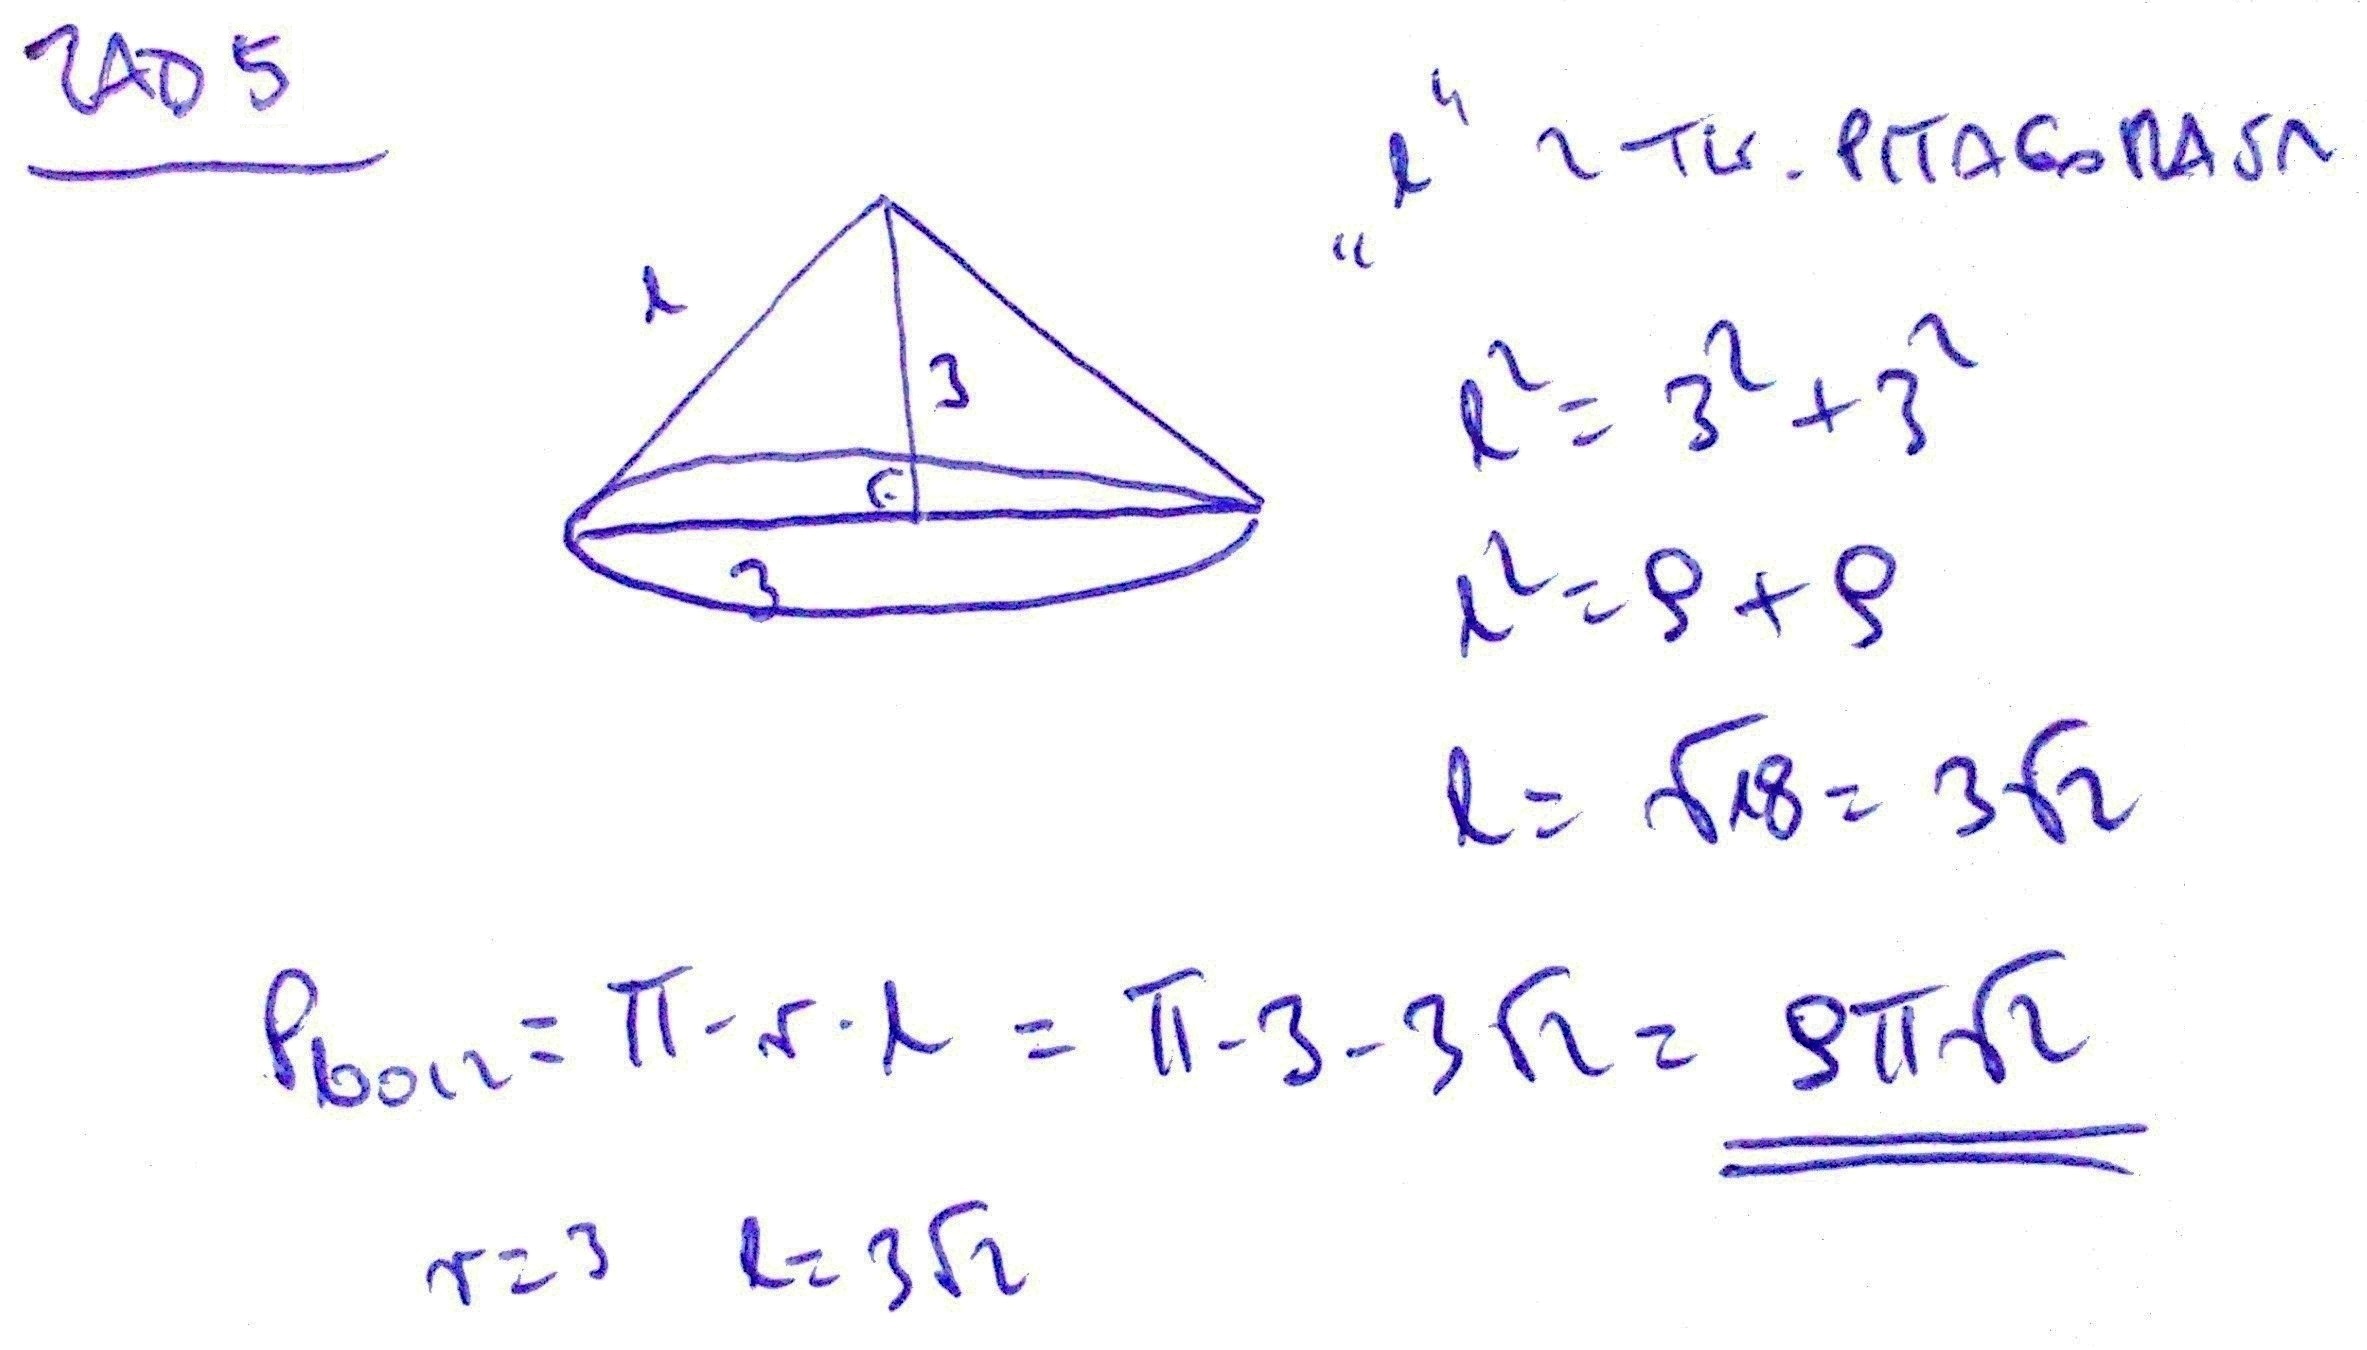 ZAD 5
"l" z TW. PITAGORASA
l
3
3
l² = 3² + 3²
l² = 9 + 9
l = √18 = 3√2
Pbocz = π · r · l = π · 3 · 3√2 = 9π√2
r = 3 l = 3√2